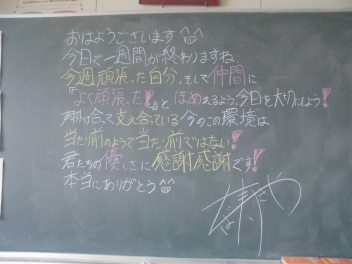 おはようございます^^
今日で一週間が終わりますね。
今週頑張った自分、そして仲間に
『よく頑張った!』と ほめれるよう、今日を大切にしよう!
合って支え合っている今のこの環境は
当たり前のようで当たり前ではない!
君たちの優しさに感謝感謝です!
本当にありがとう^^